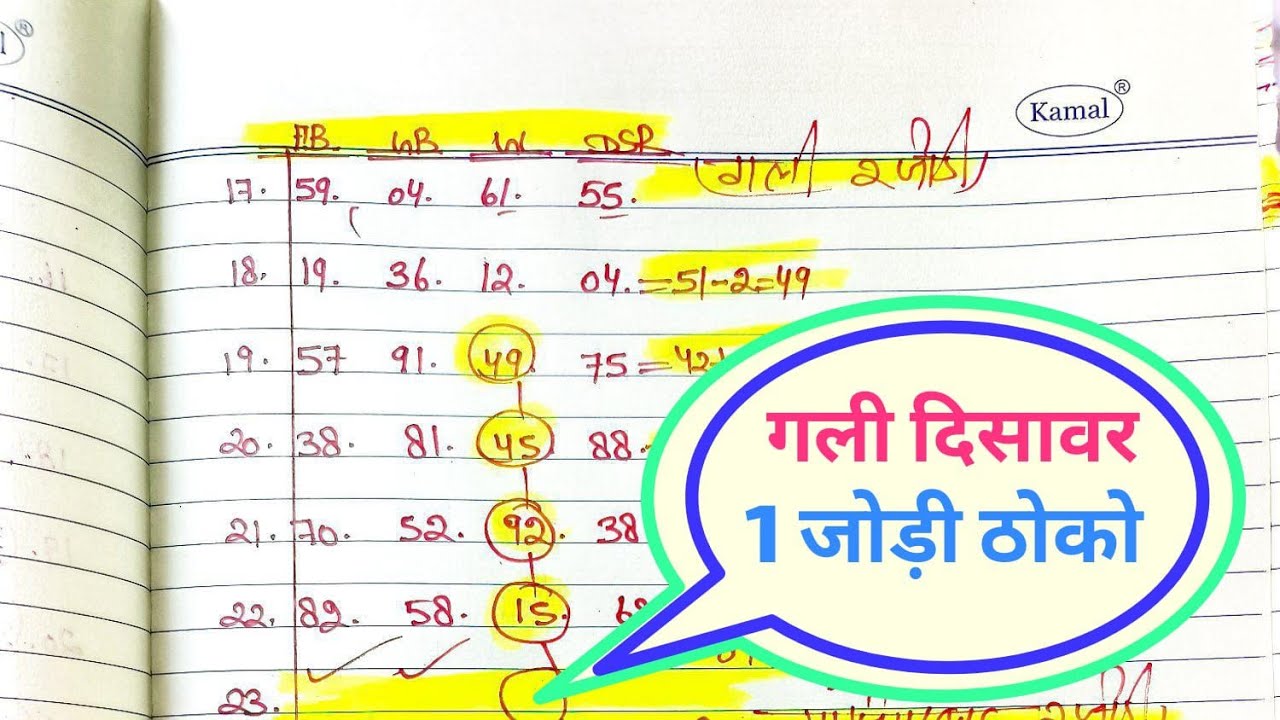 Kamal
FB GB GL DSR (गली २ जोडी)
17. 59. 04. 61. 55.
18. 19. 36. 12. 04. = 51-2=49
19. 57 91. 49 75 = 42
20. 38. 81. 45 88.
21. 70. 52. 92. 38
22. 82. 58. 15.
23.
गली दिसावर
1 जोड़ी ठोको